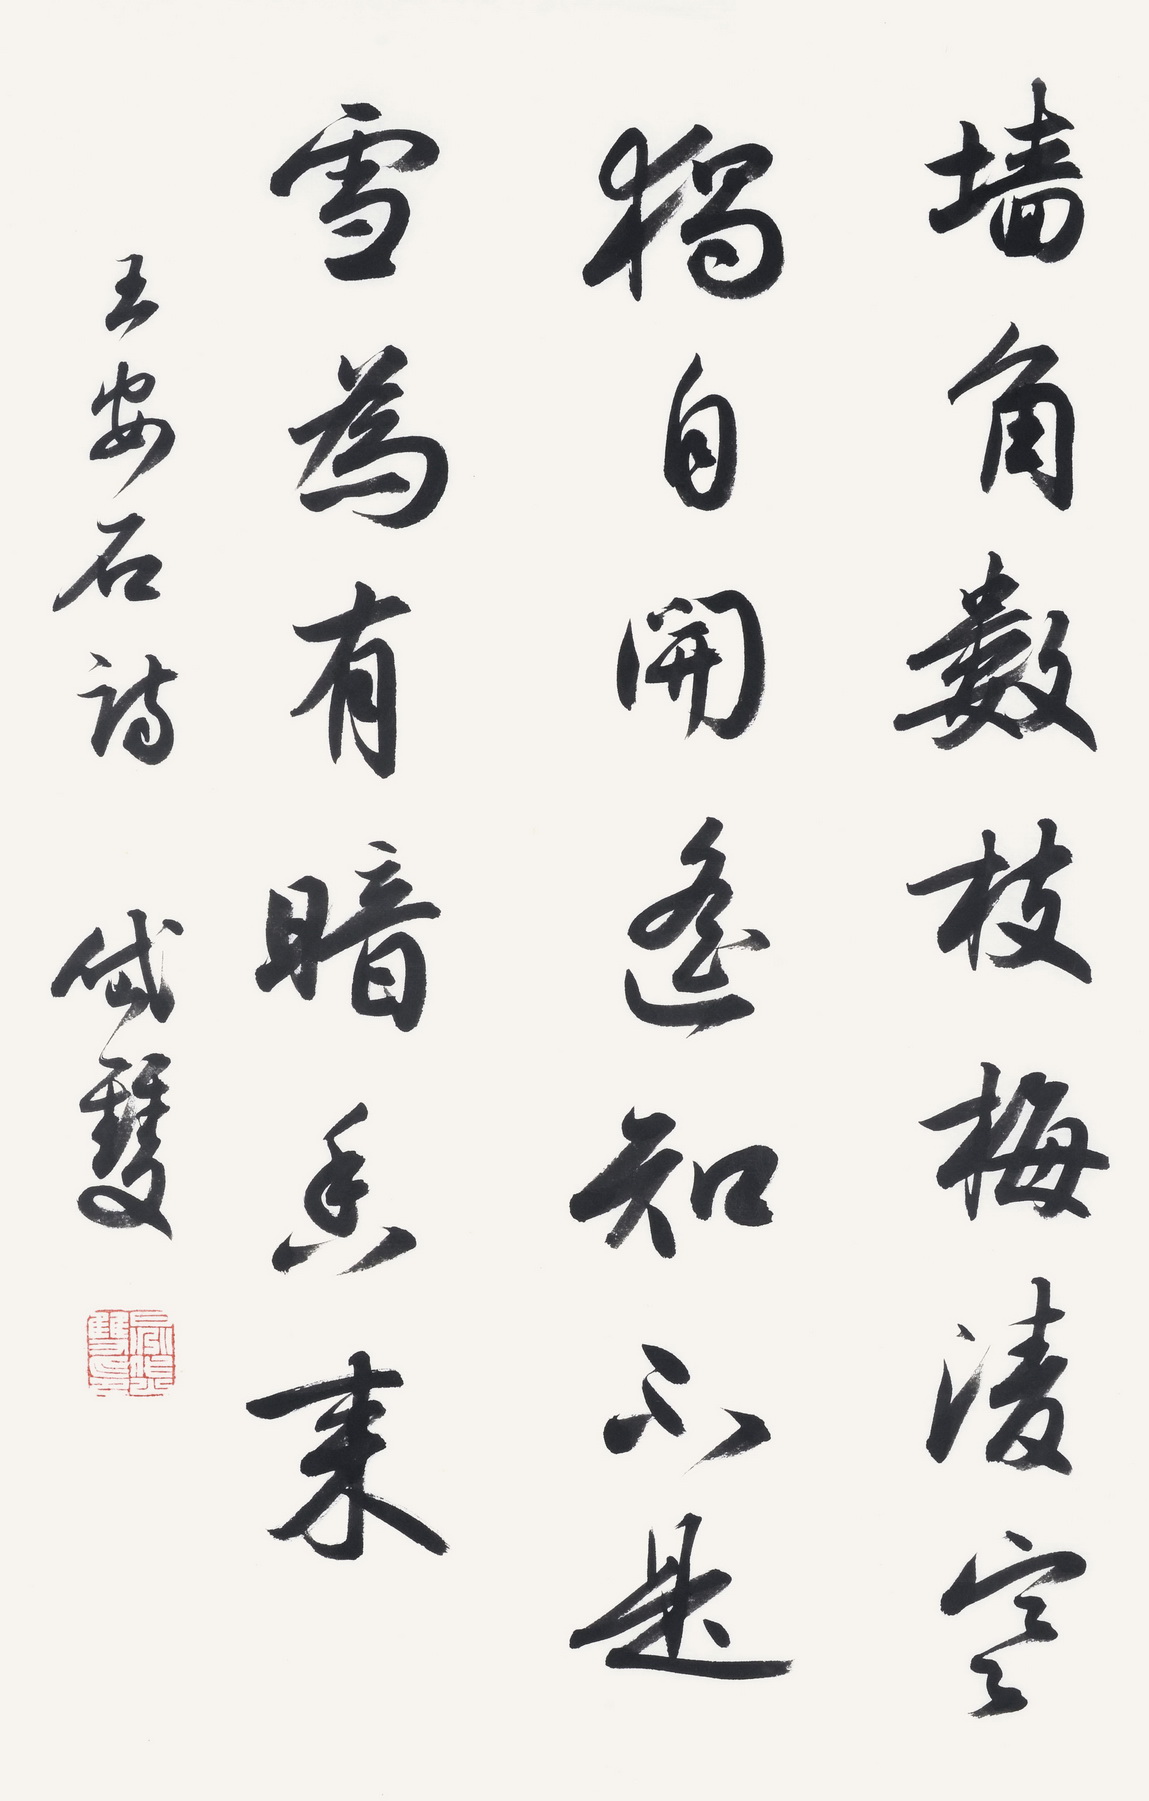 墙角数枝梅凌寒
獨自開遥知不是
雪為有暗香来
王安石詩